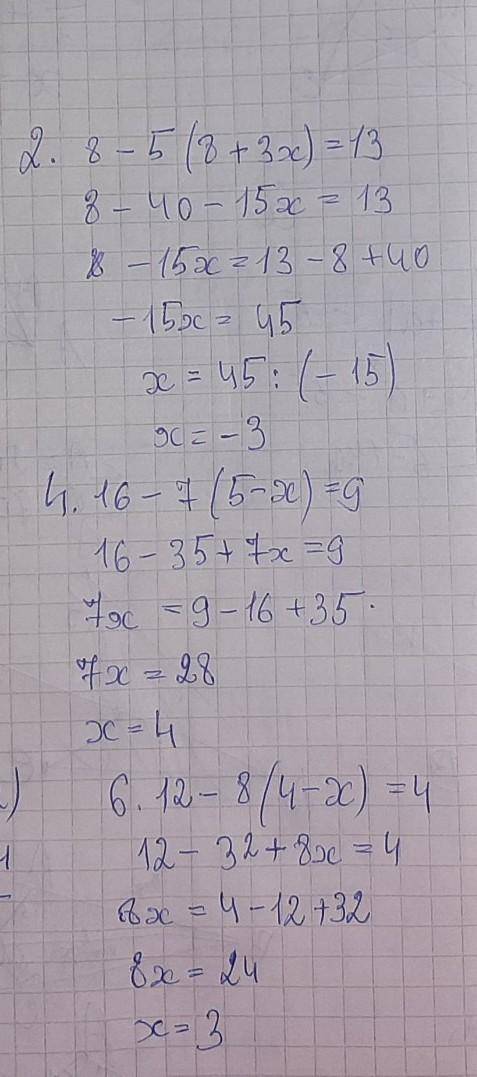 2. 8 - 5 (8 + 3x) = 13
8 - 40 - 15x = 13
- 15x = 13 - 8 + 40
- 15x = 45
x = 45 : (- 15)
x = - 3
4. 16 - 7 (5 - x) = 9
16 - 35 + 7x = 9
7x = 9 - 16 + 35
7x = 28
x = 4
6. 12 - 8 (4 - x) = 4
12 - 32 + 8x = 4
8x = 4 - 12 + 32
8x = 24
x = 3